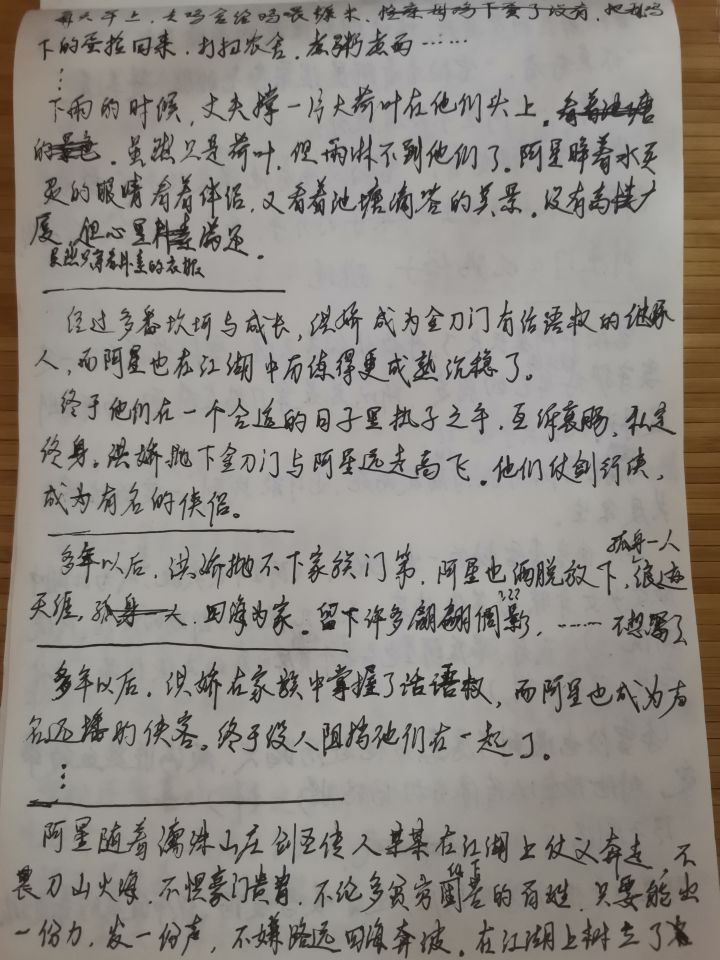 每天早上，去鸡舍给鸡喂绿水，检查母鸡下蛋了没有，把鸡
下的蛋捡回来，打扫农舍，煮粥煮面……
⋮
下雨的时候，丈夫撑一片大荷叶在他们头上。看着池塘
的景色。虽然只是荷叶，但雨淋不到他们了。阿星睁着水灵
灵的眼睛看着伴侣，又看着池塘滴答的美景。没有高楼广
厦，但心里满足。
虽然只有着朴素的衣服
经过多番坎坷与成长，洪娇成为金刀门有话语权的继承
人，而阿星也在江湖中历练得更成熟沉稳了。
终于他们在一个合适的日子里执子之手，互诉衷肠，私定
终身。洪娇抛下金刀门与阿星远走高飞。他们仗剑行侠，
成为有名的侠侣。
孤身一人
多年以后，洪娇抛不下家族门第，阿星也洒脱放下，浪迹
天涯，孤身一人，四海为家。留下许多翩翩倩影，……不想写了
???
多年以后，洪娇在家族中掌握了话语权，而阿星也成为声
名远播的侠客。终于没人阻挡他们在一起了。
⋮
阿星随着濡洙山庄剑圣传人某某在江湖上仗义奔走，不
畏刀山火海，不惧豪门贵胄，不论多贫穷困苦的百姓，只要能出
一份力，发一份声，不嫌路远四海奔波。在江湖上树立了